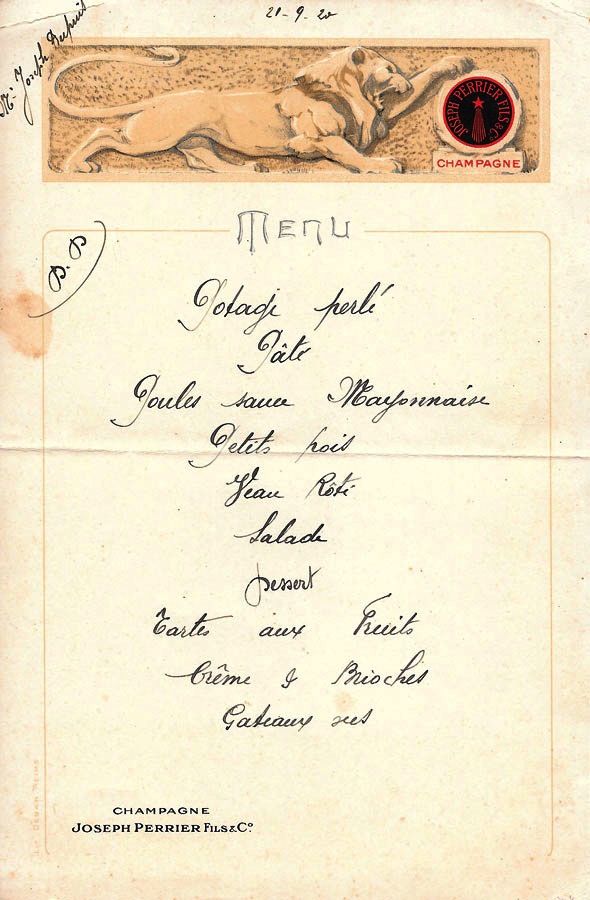 21-9-20
Mr Joseph
JOSEPH PERRIER FILS & Cº
CHAMPAGNE
MENU
P. P
Potage perlé
Pâté
Poules sauce Mayonnaise
Petits pois
Veau Rôti
Salade
Dessert
Tartes aux Fruits
Crême & Brioches
Gateaux secs
CHAMPAGNE
JOSEPH PERRIER FILS & Cº
REIMS